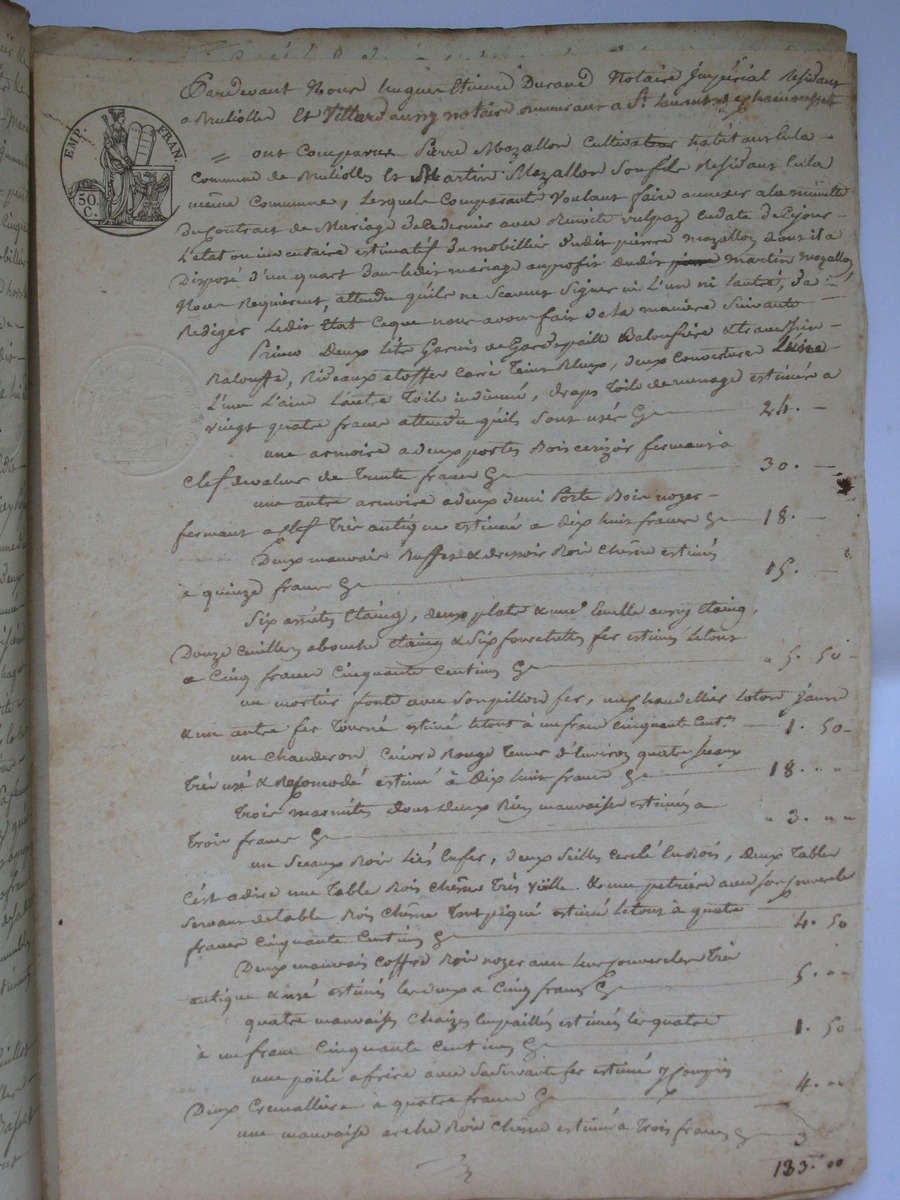 Pardevant Nous hugue Etienne Durand Notaire Impérial Résidant
a Bruliolles Et Villard aussy notaire demeurant a St laurent de chamousset
EMP. FRAN.
50. C.
= ont Comparus Pierre Mozallon Cultivateur habitant en la
Commune de Bruliolles Et Martin Mozallon Son fils Résidant en la
même Commune, Lesquels Comparant Voulant faire annexer a la minute
du Contract de Mariage de ce dernier avec Benoite vulpaz en date de Ce jour
L'état ou inventaire estimatif du mobillier dudit pierre mozallon dont il a
Disposé d'un quart dans ledit mariage au profit dudit martin mozallon,
Nous Requierent, attendu qu'ils ne Scavent Signer ni L'un ni lautre, de
Rediger Ledit Etat Ce que nous avons fait de la manière Suivante
Primo Deux Lits Garnis de Gardepaille Baloufière & traversin
Balouffe, Rideaux etoffes carré Teint Bleux, deux Couvertures
L'une Laine Lautre Toile indienne, draps Toile de menage estimés a
vingt quatre francs attendu qu'ils Sont usés Cy 24. -
une armoire a deux portes Bois cerizier fermant a
Clef de valeur de Trente francs Cy 30. -
une autre armoire a deux demi Porte Bois noyer
fermant a Clef Très antique estimée a dix huit francs Cy 18. -
Deux mauvais Buffet & dressoir Bois Chêne estimés
à quinze francs Cy 15. -
Six assietes Etaing, deux plats & une Cuillie aussy Etaing,
Douze Cuillers abouche Etaing & Six fourchettes fer estimés Letout
a Cinq francs Cinquante Centimes Cy " 5. 50 -
un mortier fonte avec Son pillon fer, un Chandellier Loton jaune
& un autre fer Tourné estimé Letout à un franc Cinquante Cent.es 1. 50 -
un Chauderon Cuivre Rouge Tenant d'Environ quatre Seaux
Très usé & Racomodé estimé à Dix huit francs Cy 18. " "
Trois marmites dont Deux Bien mauvaises estimées a
Trois francs Cy " 3. " "
un Seaux Bois Liés en fer, deux Seilles cerclé en Bois, deux Table
C'est adire une Table Bois Chêne Très Vielle. & une petrière avec Son Couvercle
Servant de table Bois Chêne Tout piqué estimé Letout à quatre
francs Cinquante Centimes Cy 4. 50
Deux mauvais Coffres Bois noyer avec leur Couvercles Très
antique & usé estimés les deux a Cinq francs Cy 5. " "
quatre mauvaises Chaizes Empaillés estimés les quatre
à un franc Cinquante Centimes Cy 1. 50
une poële a frire avec Sa Servant fer estimé y Compris
Deux Cremallière à quatre francs Cy 4. " "
une mauvaise arche Bois Chêne estimé à Trois francs Cy 3
133. 00